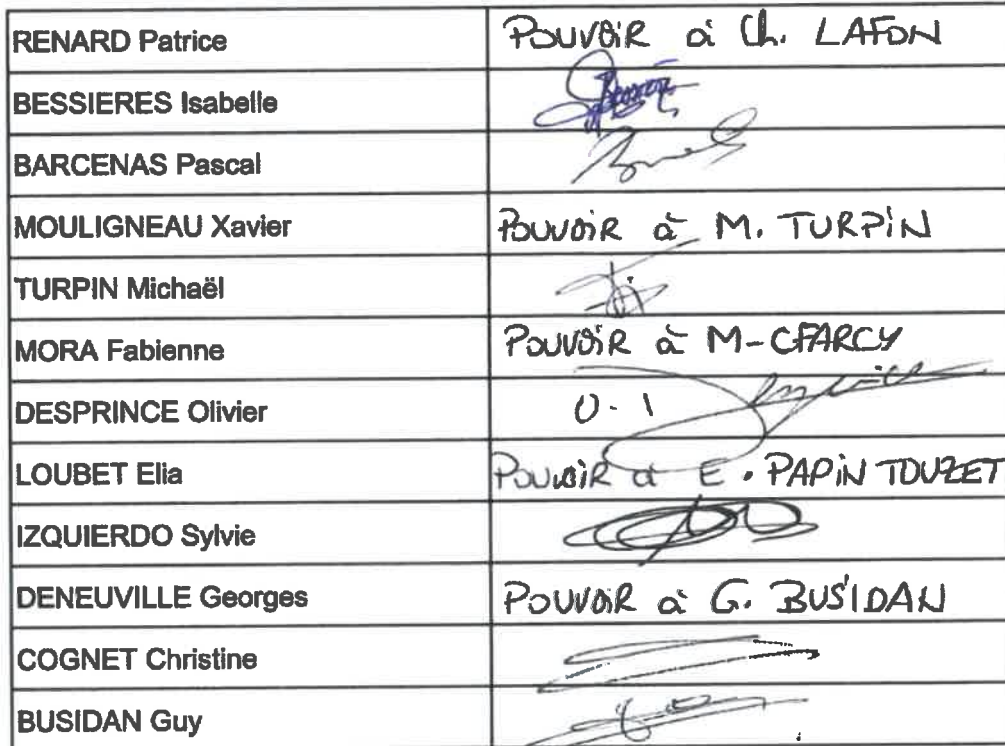 RENARD Patrice POUVOIR à Ch. LAFON
BESSIERES Isabelle
BARCENAS Pascal
MOULIGNEAU Xavier POUVOIR à M. TURPIN
TURPIN Michaël
MORA Fabienne POUVOIR à M-C FARCY
DESPRINCE Olivier
LOUBET Elia POUVOIR à E. PAPIN TOUZET
IZQUIERDO Sylvie
DENEUVILLE Georges POUVOIR à G. BUSIDAN
COGNET Christine
BUSIDAN Guy